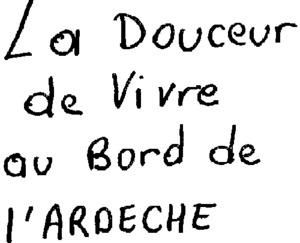 La Douceur
de Vivre
au Bord de
l'ARDECHE